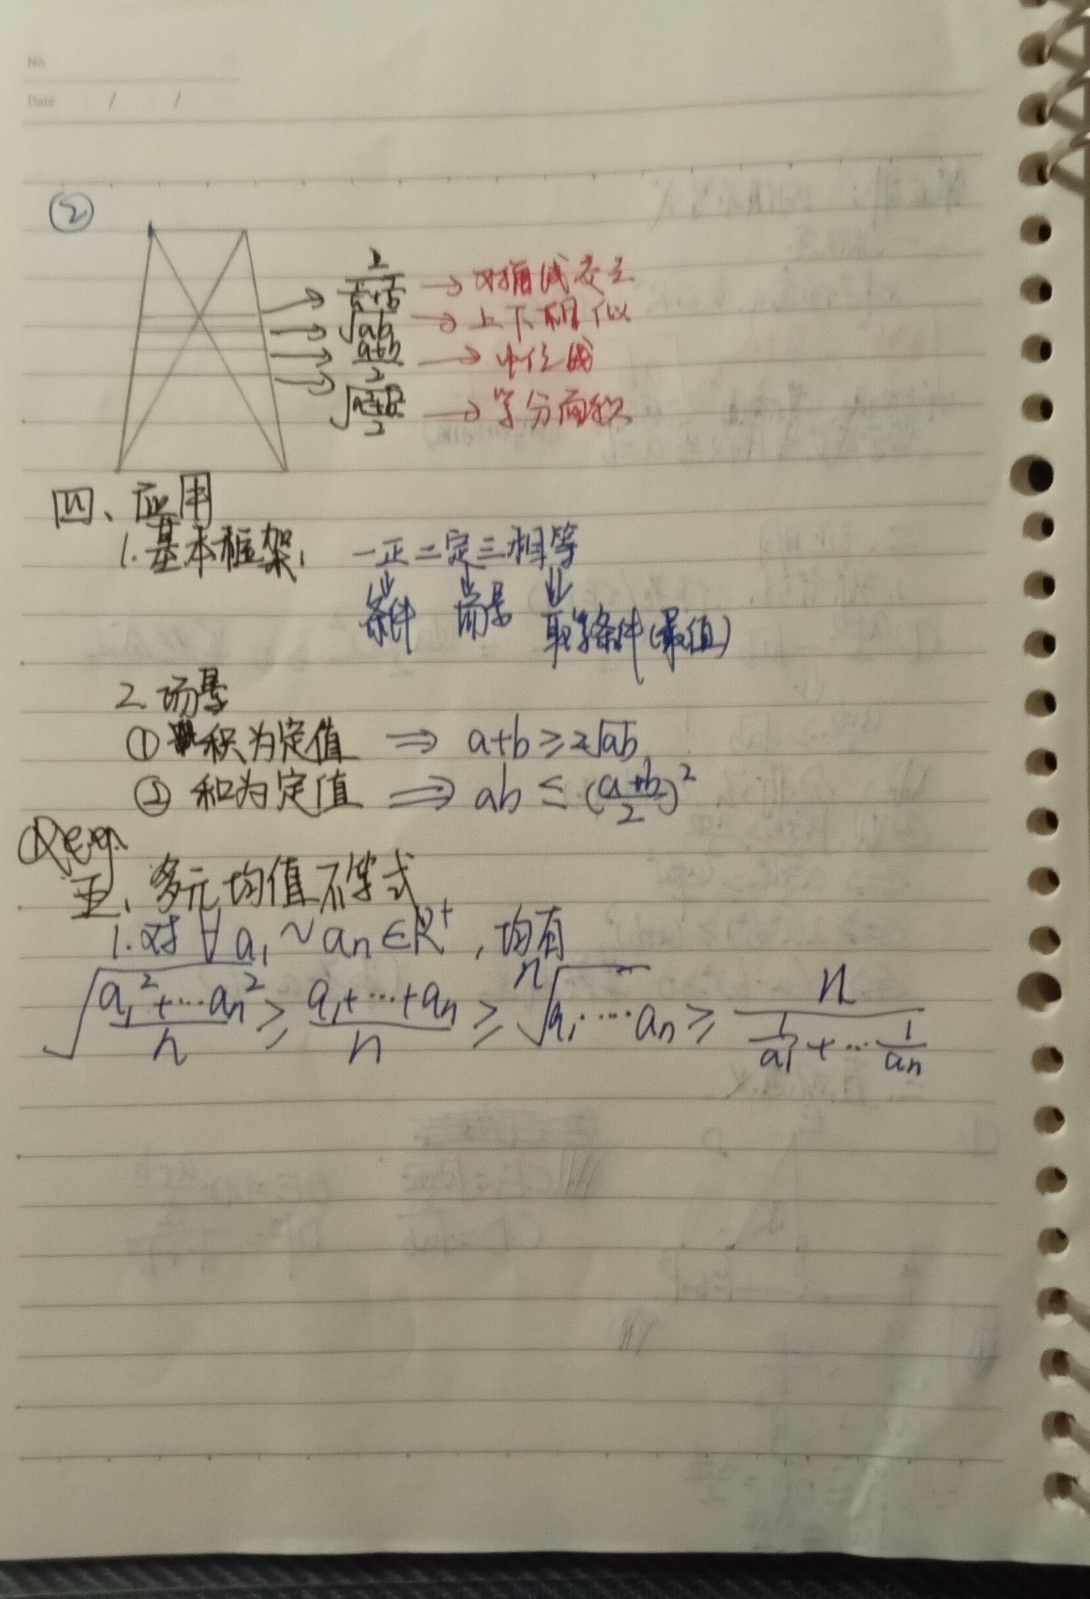 No.
Date / /
②
2/(1/a+1/b) → 对角线交点
√ab → 上下相似
(a+b)/2 → 中位线
√((a²+b²)/2) → 等分面积
四、应用
1.基本框架: 一正二定三相等
条件 场景 取等条件(最值)
2.场景
① 积为定值 ⇒ a+b≥2√ab
② 和为定值 ⇒ ab ≤ ((a+b)/2)²
e.g.
五、多元均值不等式
1.对∀a₁~aₙ∈R⁺,均有
√((a₁²+…aₙ²)/n) ≥ (a₁+…+aₙ)/n ≥ ⁿ√(a₁…aₙ) ≥ n/(1/a₁+…1/aₙ)